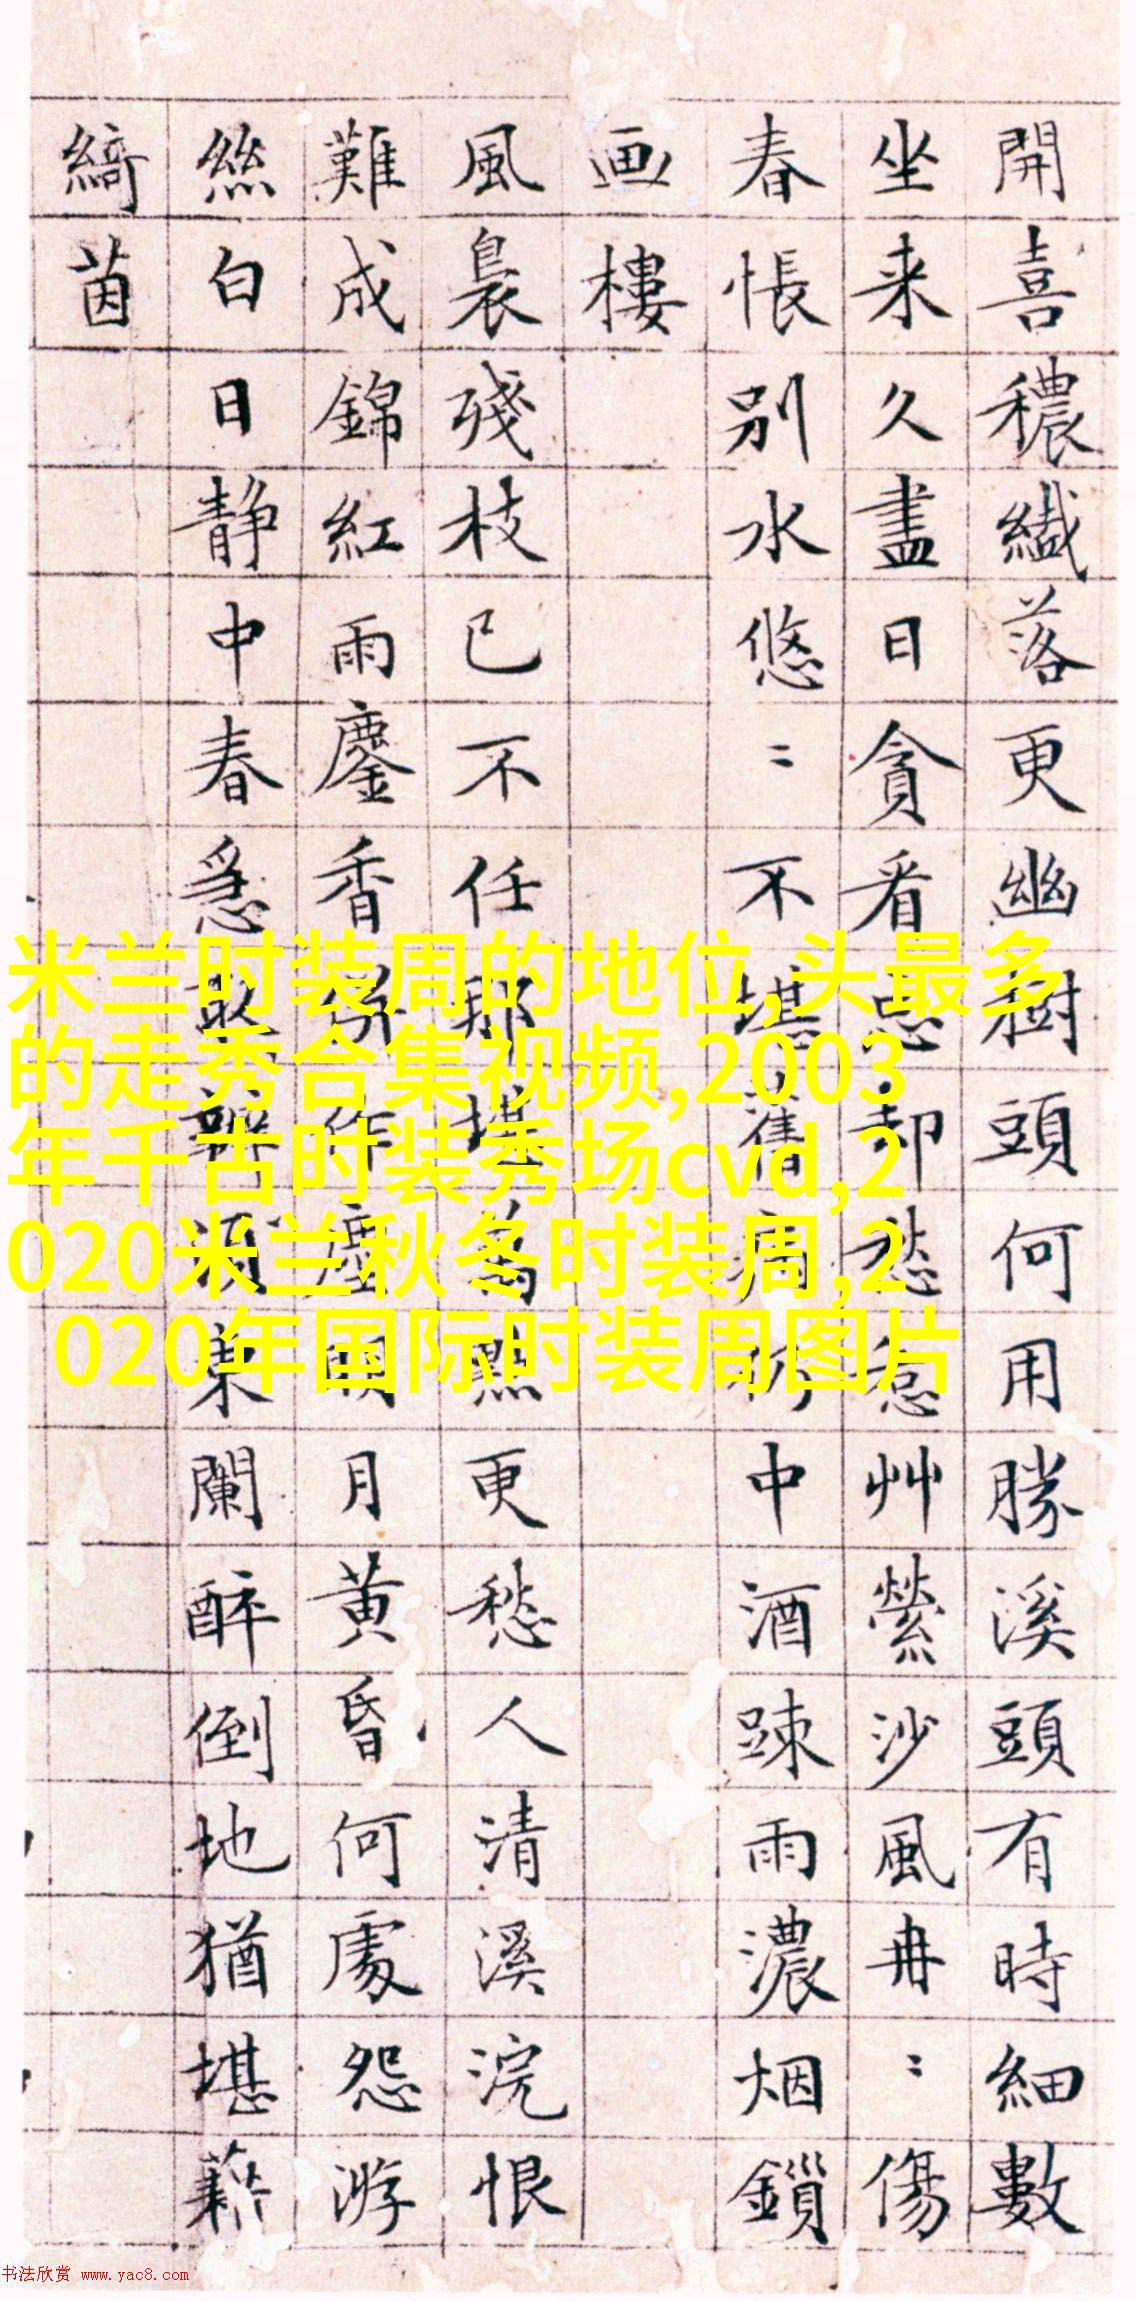 開喜穠纎落更幽樹頭何用勝溪頭有時細數
坐来久盡日貪看忘却愁惹艸縈沙風冉〻傷
春悵別水悠〻不堪舊病中酒踈雨濃烟鎖
画樓
風裊殘枝已不任那堪萬點更愁人清溪浣恨
難成錦紅雨鏖香併作塵明月黄昏何處怨游
絲白日静中春急敢辭頻東闌醉倒地猶堪藉
綺茵
米兰时装周的地位,头最多
的走秀合集视频,2003
年千古时装秀场cvd,2
020米兰秋冬时装周,2
020年国际时装周图片
书法欣赏 www.yac8.com